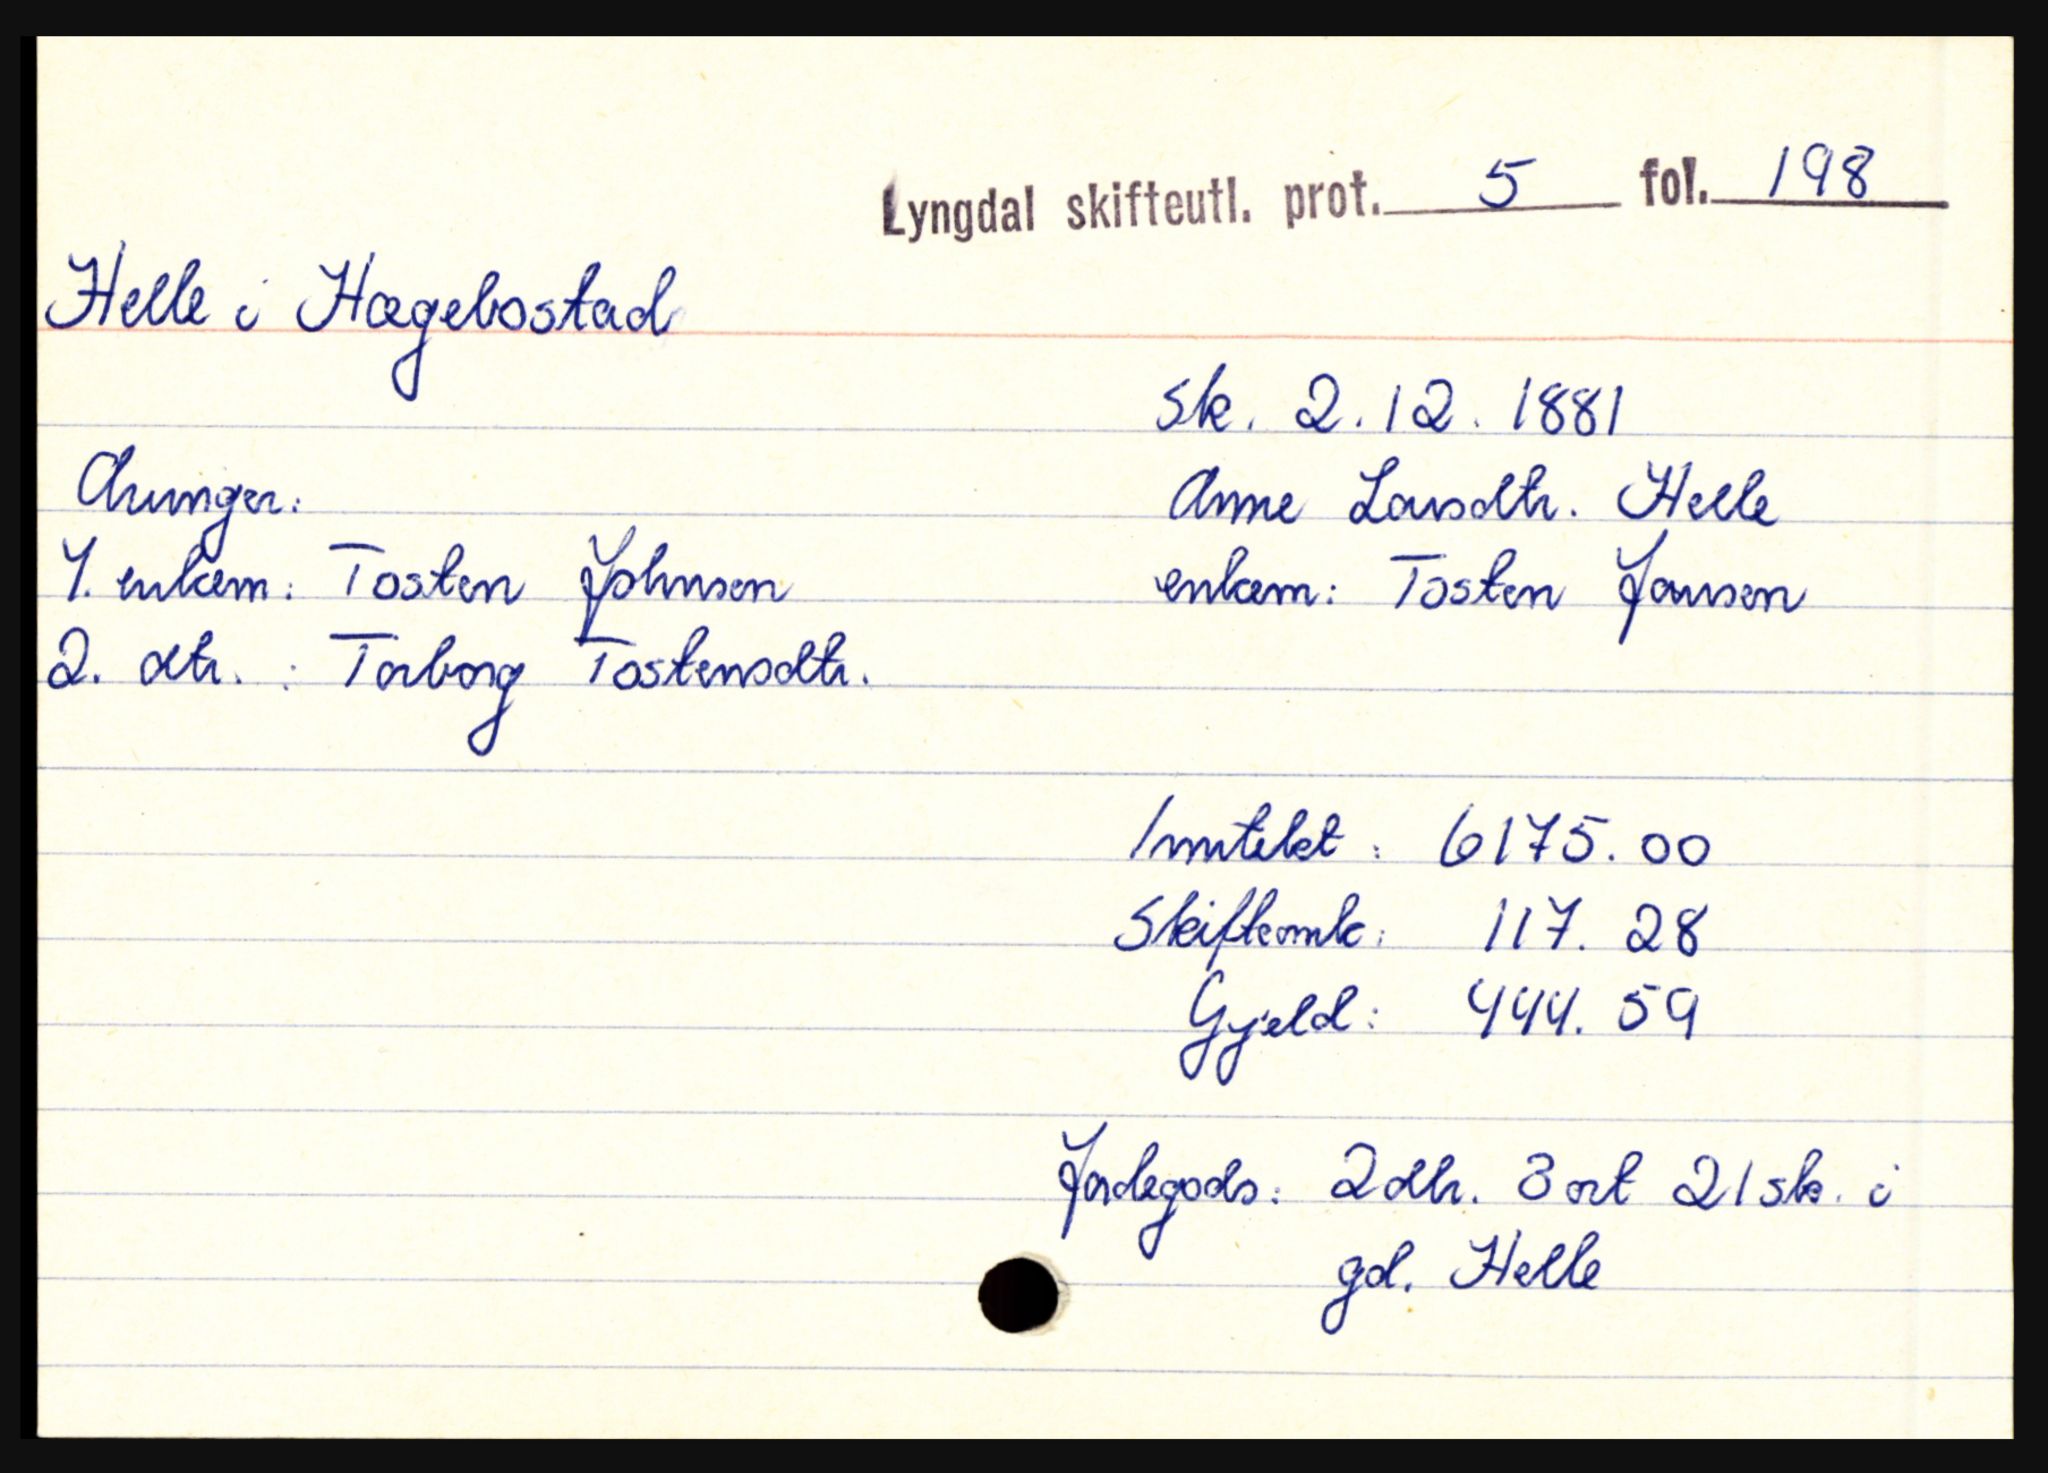 Lyngdal skifteutl. prot. 5 fol. 198
Helle i Hægebostad
sk. 2.12.1881
Anne Larsdtr. Helle
enkem: Tosten Jansen
Arvinger:
1. enkem: Tosten Johnsen
2. dtr. : Torborg Tostensdtr.
Inntekt : 6175.00
Skifteomk: 117.28
Gjeld: 444.59
Jordegods: 2 dlr. 3 ort 21 sk. i
gd. Helle